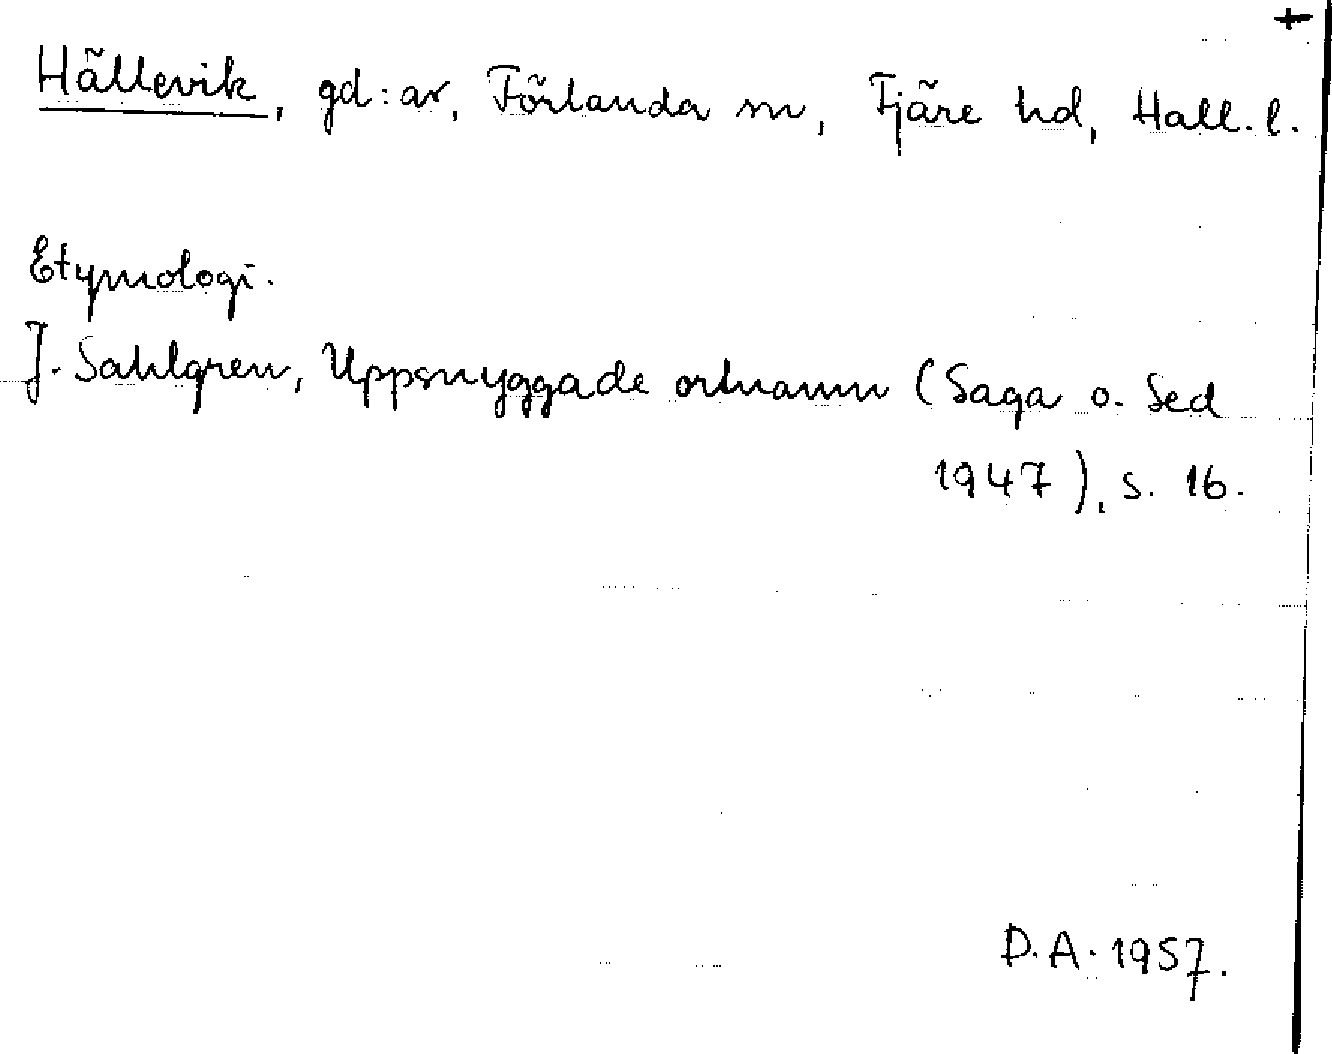 +
Hällevik, gd:ar, Förlanda sn, Fjäre hd, Hall. l.
Etymologi.
J. Sahlgren, Uppsnyggade ortnamn (Saga o. Sed
1947), s. 16.
D.A. 1957.